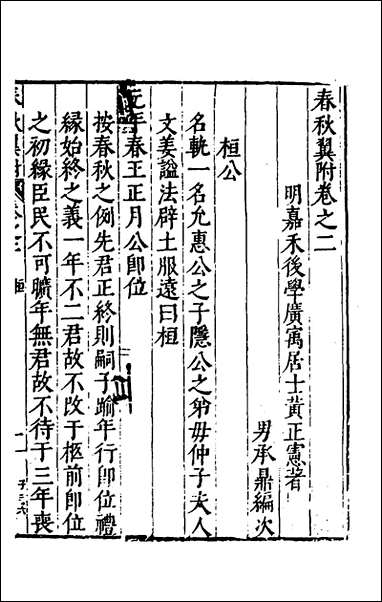 春秋翼附卷之二
明嘉禾後學廣寓居士黃正憲著
男承鼎編次
桓公
名軌一名允惠公之子隱公之弟毋仲子夫人
文姜謚法辟土服遠曰桓
元年春王正月公卽位
按春秋之例先君正終則嗣子踰年行卽位禮
緣始終之義一年不二君故不改于柩前卽位
之初緣臣民不可曠年無君故不待于三年喪
春秋翼附 卷之二 桓 一